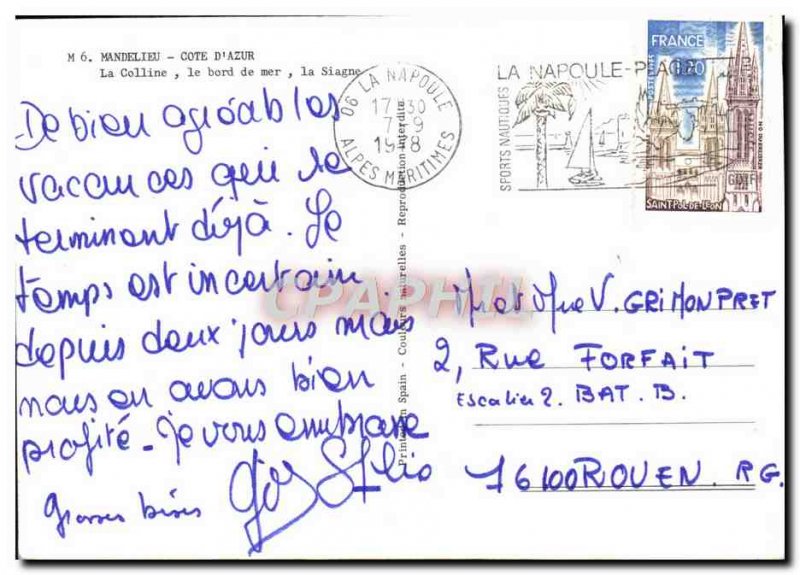 M 6. MANDELIEU - COTE D'AZUR
La Colline, le bord de mer, la Siagne
De bien agréables
vacances qui se
terminent déjà. Le
temps est incertain
depuis deux jours mais
nous en avons bien
profité - Je vous embrasse
Grosses bises
06 LA NAPOULE
17-30
7-9
ALPES MARITIMES
LA NAPOULE-PLAGE
SPORTS NAUTIQUES
GOLF
FRANCE
1.20
SAINT-POL-DE-LEON
Printed in Spain - Couleurs naturelles - Reproduction interdite
CPAPHIL
Mr et Mme V. GRIMONPRET
2, Rue FORFAIT
Escalier 2. BAT. B.
76100 ROUEN. RG.